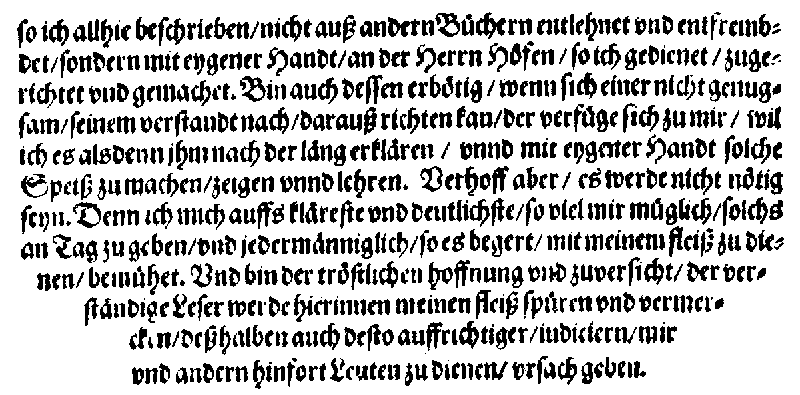 so ich allhie beschrieben/nicht auß andern Büchern entlehnet vnd entfremb-
det/sondern mit eygener Handt/an der Herrn Höfen/so ich gedienet/zuge-
richtet vnd gemachet. Bin auch dessen erbötig/wenn sich einer nicht genug-
sam/seinem verstandt nach/darauß richten kan/der verfüge sich zu mir/ wil
ich es alsdenn jhm nach der läng erklären / vnnd mit eygener Handt solche
Speiß zu machen/zeigen vnnd lehren. Verhoff aber/ es werde nicht nötig
seyn. Denn ich mich auffs kläreste vnd deutlichste/so viel mir müglich/solchs
an Tag zu geben/vnd jedermänniglich/so es begert/ mit meinem fleiß zu die-
nen/ bemühet. Vnd bin der tröstlichen hoffnung vnd zuversicht/ der ver-
ständige Leser werde hierinnen meinen fleiß spüren vnd vermer-
cken/deßhalben auch desto auffrichtiger/iudiciern/mir
vnd andern hinfort Leuten zu dienen/ vrsach geben.